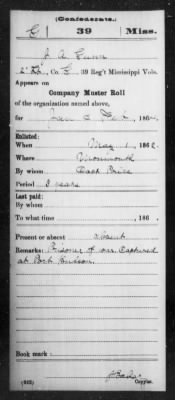 (Confederate.)
G 39 Miss.
J. A. Gunn
Co. G, 39 Reg't Mississippi Vols.
Appears on
Company Muster Roll
of the organization named above,
for Jan & Feb, 1864.
Enlisted:
When May 1, 1862.
Where Monmouth
By whom Capt Price
Period 3 years
Last paid:
By whom
To what time , 186 .
Present or absent Absent
Remarks: Prisoner of war Captured
at Port Hudson.
Book mark:
(642)
Copyist.